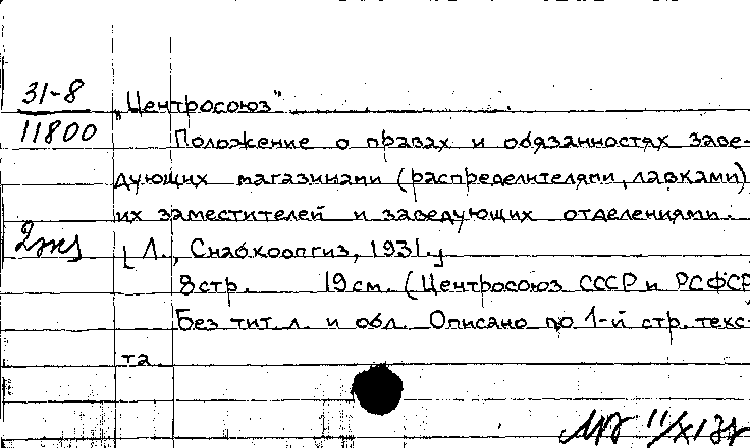 31-8
11800
„Центросоюз"
Положение о правах и обязанностях заве-
дующих магазинами (распределителями, лавками),
их заместителей и заведующих отделениями.
[Л., Снабкоопгиз, 1931]
8 стр. 19 см. (Центросоюз СССР и РСФСР
Без тит. л. и обл. Описано по 1-й стр. текс-
та